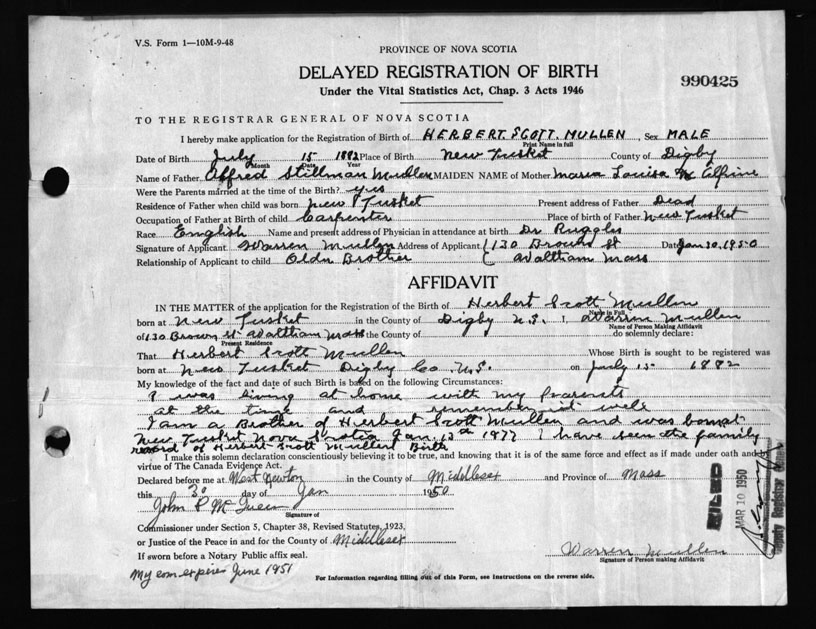 V.S. Form 1—10M-9-48
PROVINCE OF NOVA SCOTIA
DELAYED REGISTRATION OF BIRTH
990425
Under the Vital Statistics Act, Chap. 3 Acts 1946
TO THE REGISTRAR GENERAL OF NOVA SCOTIA
I hereby make application for the Registration of Birth of HERBERT SCOTT MULLEN, Sex MALE
Print Name in full
Date of Birth July 15 1882 Place of Birth New Tusket County of Digby
Month Date Year
Name of Father Alfred Stillman Mullen MAIDEN NAME of Mother Maria Louisa Mc Alpine
Were the Parents married at the time of the Birth? yes
Residence of Father when child was born New Tusket Present address of Father Dead
Occupation of Father at Birth of Child Carpenter Place of birth of Father New Tusket
Race English Name and present address of Physician in attendance at birth Dr Ruggles
Signature of Applicant Warren Mullen Address of Applicant 130 Brown St Date Jan 30, 1950
Relationship of Applicant to child Older Brother Waltham Mass
AFFIDAVIT
IN THE MATTER of the application for the Registration of the Birth of Herbert Scott Mullen
Name in Full
born at New Tusket in the County of Digby N.S. I, Warren Mullen
Name of Person Making Affidavit
of 130 Brown St Waltham Mass the County of do solemnly declare:
Present Residence
That Herbert Scott Mullen Whose Birth is sought to be registered was
born at New Tusket Digby Co N.S. on July 15 1882
My knowledge of the fact and date of such Birth is based on the following Circumstances:
I was living at home with my parents
at the time and remember it well
I am a Brother of Herbert Scott Mullen and was born at
New Tusket Nova Scotia Jan. 13th 1877 I have seen the family
record of Herbert Scott Mullen Birth
I make this solemn declaration conscientiously believing it to be true, and knowing that it is of the same force and effect as if made under oath and by
virtue of The Canada Evidence Act.
Declared before me at West Newton in the County of Middlesex and Province of Mass
this 30 day of Jan 1950
John P McQueen
Signature of
Commissioner under Section 5, Chapter 38, Revised Statutes, 1923,
or Justice of the Peace in and for the County of Middlesex
If sworn before a Notary Public affix seal.
Warren Mullen
Signature of Person making Affidavit
My com expires June 1951
For Information regarding filling out of this Form, see Instructions on the reverse side.
FILED
MAR 10 1950
Deputy Registrar